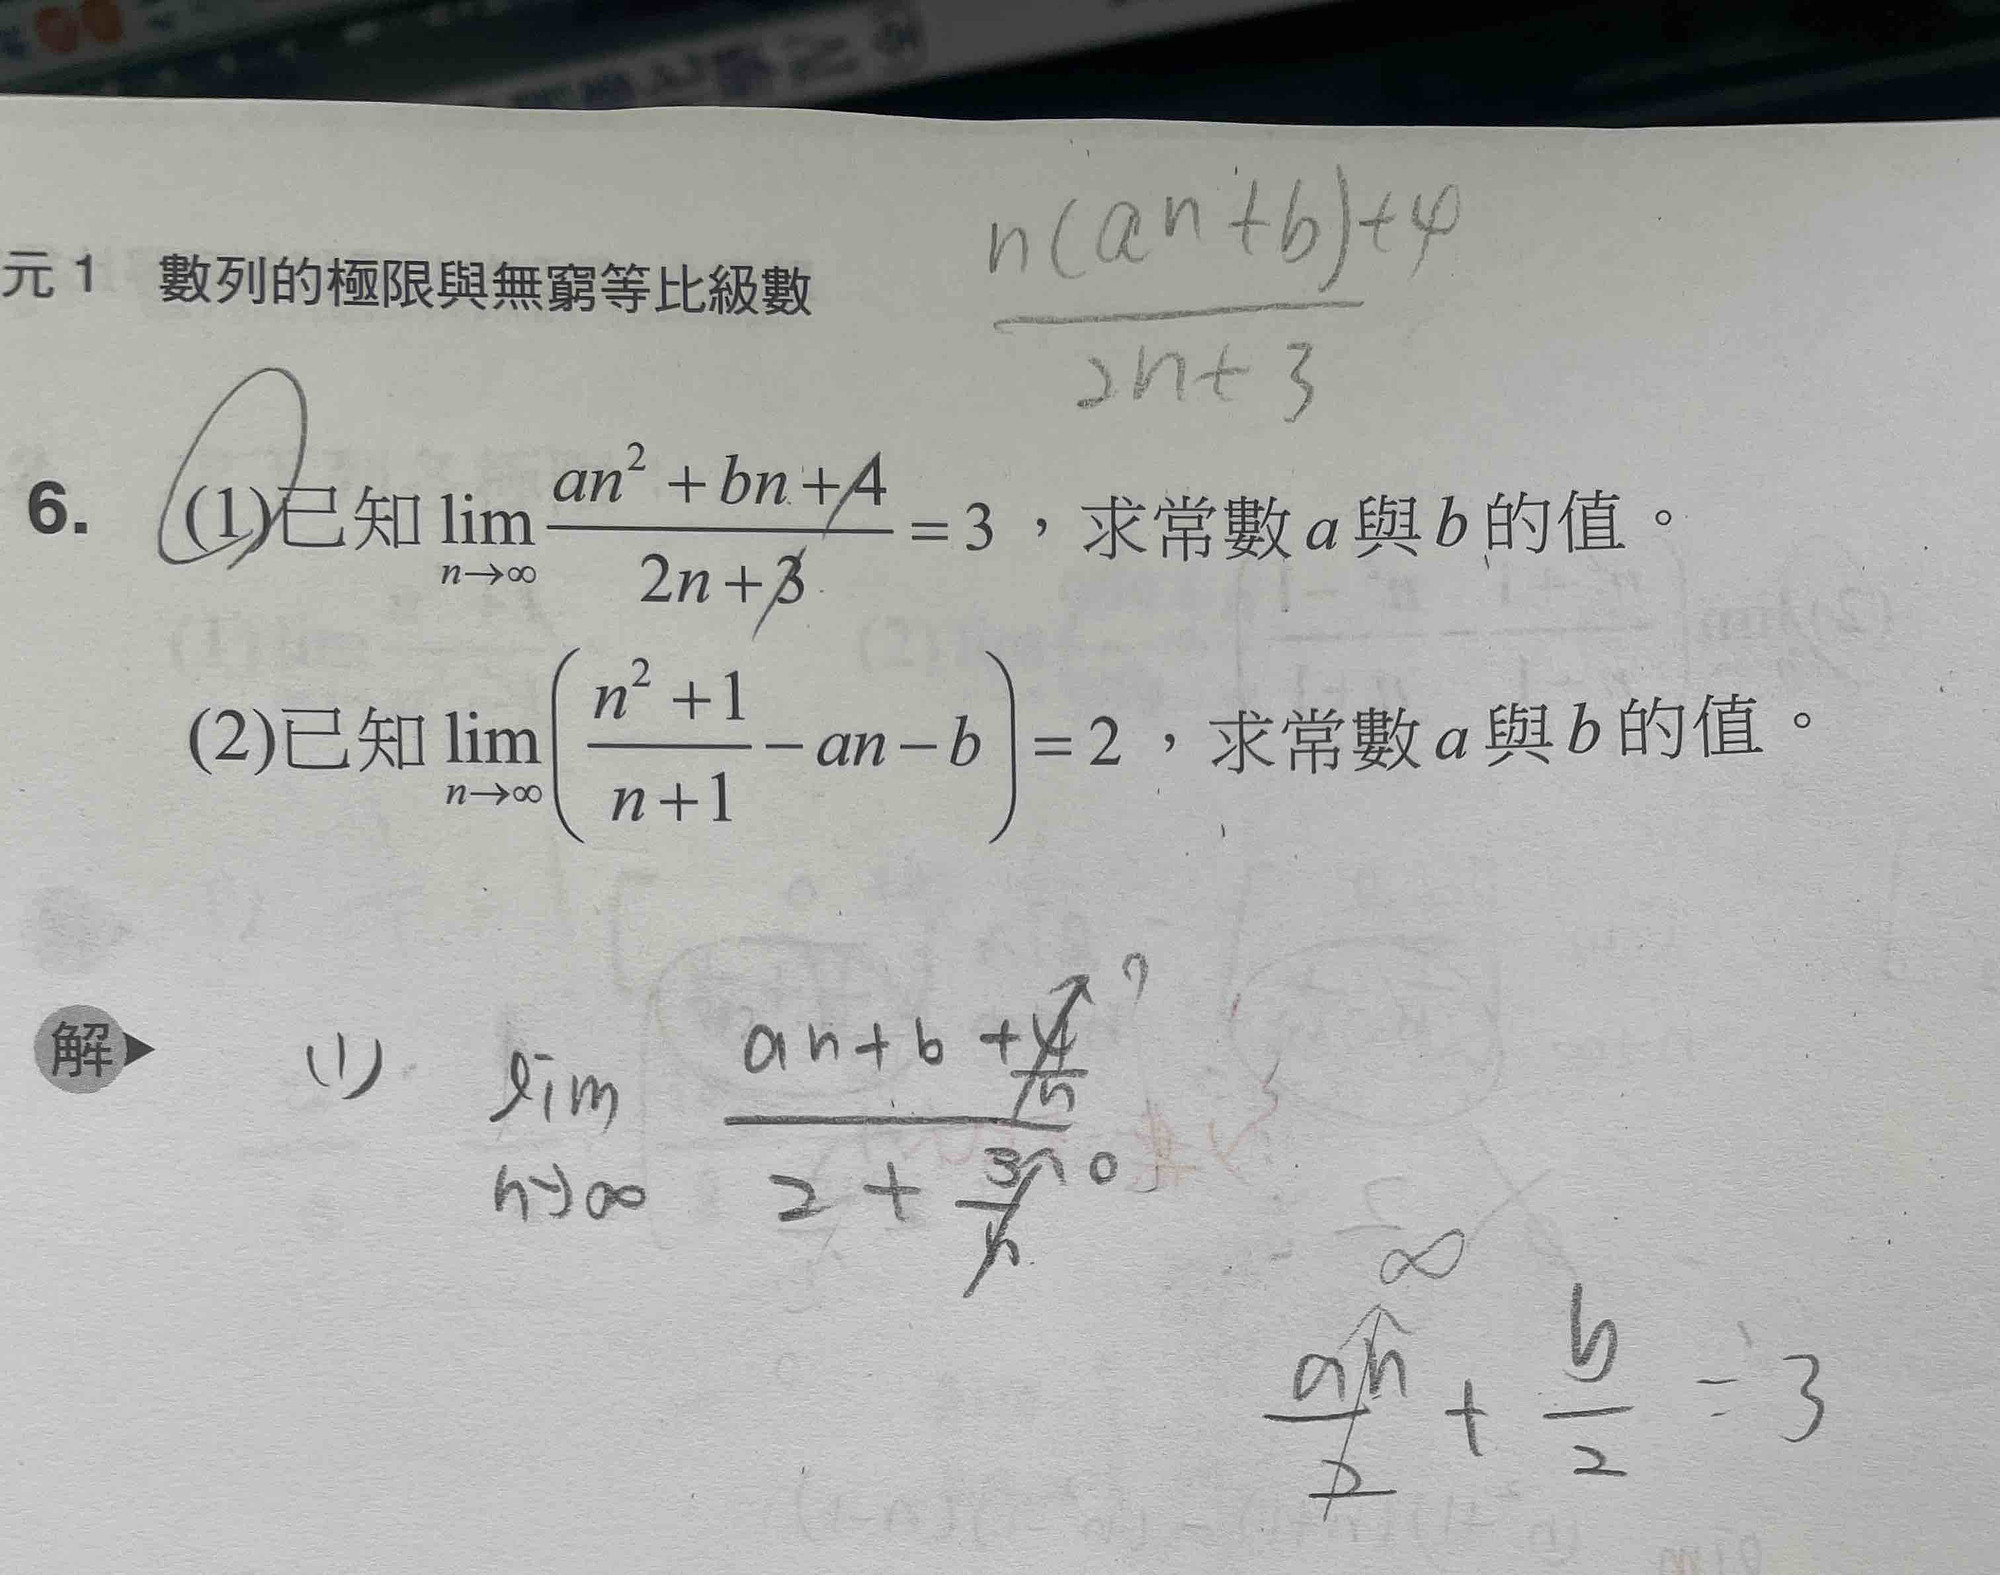 n(an+b)+4
2n+3
元1 數列的極限與無窮等比級數
6. (1)已知 lim n→∞ (an² + bn + 4)/(2n + 3) = 3，求常數 a 與 b 的值。
(2)已知 lim n→∞ ((n² + 1)/(n + 1) − an − b) = 2，求常數 a 與 b 的值。
解 (1) lim n→∞ (an + b + 4/n)/(2 + 3/n) 0
∞
an/2 + b/2 = 3